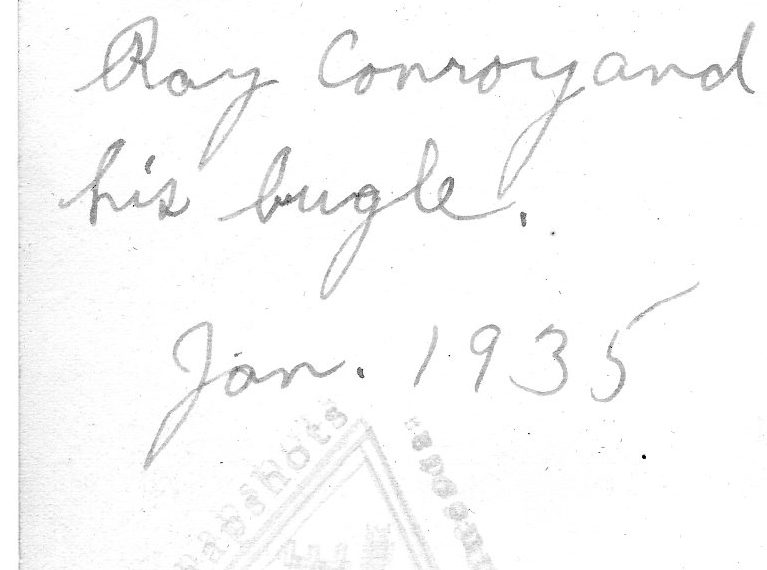 Ray Conroy and
his bugle.
Jan. 1935
snapshots